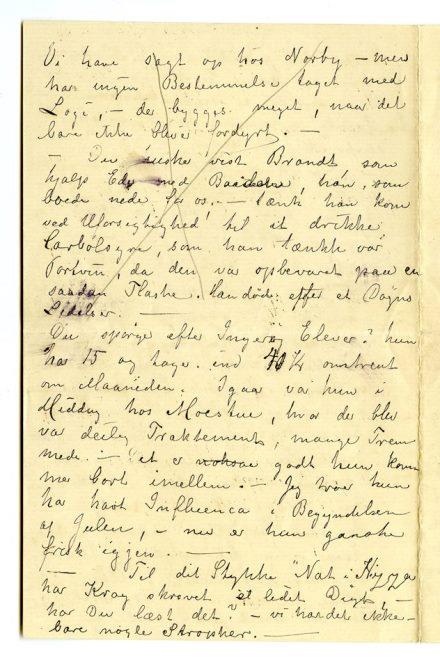 Vi have sagt op hos Norby – men
har ingen Bestemmelse taget med
Logi, – der bygges meget, naar det
bare ikke blev fordyrt. –
– Du husker vist Brandt som
hjalp Edv med Baaden, han, som
boede nede hos os. – tænk han kom
ved Uforsigtighed til at drikke
Carbolsyre, som han tænkte var
Portvin, da den var opbevaret paa en
saadan Flaske. Han døde efter et Døgns
Lidelser. –
Du spørge efter Ingers Elever? hun
har 15 og tage ind 40 Kr omtrent
om Maaneden. Igaar var hun i
Middag hos Moestue, hvor der blev
var deilig Traktement, mange Frem
mede. – Det er godt hun kom
mer bort imellem. – Jeg tror hun
ha havt Influenca i Begyndelsen
af Julen, – nu er hun ganske
frisk igjen. –
– Til dit Stykke "Nat i
har Krag skrevet et lidet Digt –
har Du læst det? – vi har det ikke –
bare nogle Stropher. –